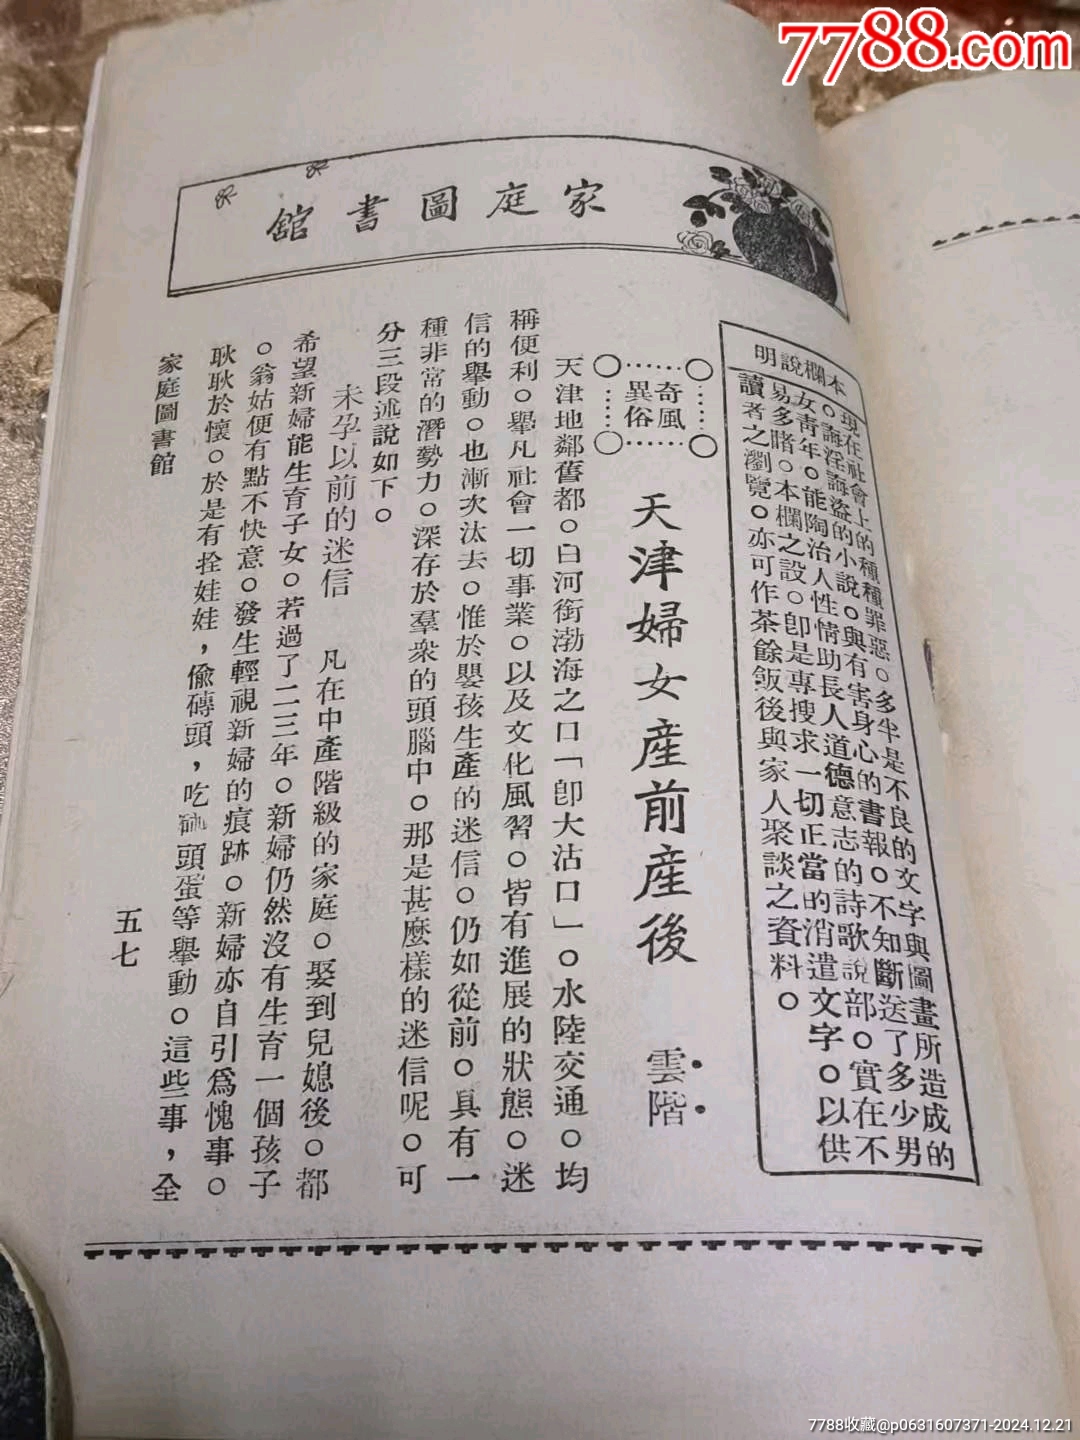 7788.com
家庭圖書館
本欄說明
現在社會上的種種罪惡。多半是不良的文字與圖畫所造成的
。誨淫誨盜的小說。與有害身心的書報。不知斷送了多少男
女靑年。能陶冶人性情助長人道德意志的詩歌說部。實在不
易多睹。本欄之設。卽是專搜求一切正當的消遣文字。以供
讀者之瀏覽。亦可作茶餘飯後與家人聚談之資料。
○……○
奇風……
……異俗
○……○
天津婦女產前產後
雲階
天津地鄰舊都。白河銜渤海之口「卽大沽口」。水陸交通。均
稱便利。舉凡社會一切事業。以及文化風習。皆有進展的狀態。迷
信的舉動。也漸次汰去。惟於嬰孩生產的迷信。仍如從前。具有一
種非常的潛勢力。深存於羣衆的頭腦中。那是甚麼樣的迷信呢。可
分三段述說如下。
未孕以前的迷信　凡在中產階級的家庭。娶到兒媳後。都
希望新婦能生育子女。若過了二三年。新婦仍然沒有生育一個孩子
。翁姑便有點不快意。發生輕視新婦的痕跡。新婦亦自引爲愧事。
耿耿於懷。於是有拴娃娃，偷磚頭，吃頭蛋等舉動。這些事，全
家庭圖書館
五七
7788收藏@p0631607371-2024.12.21